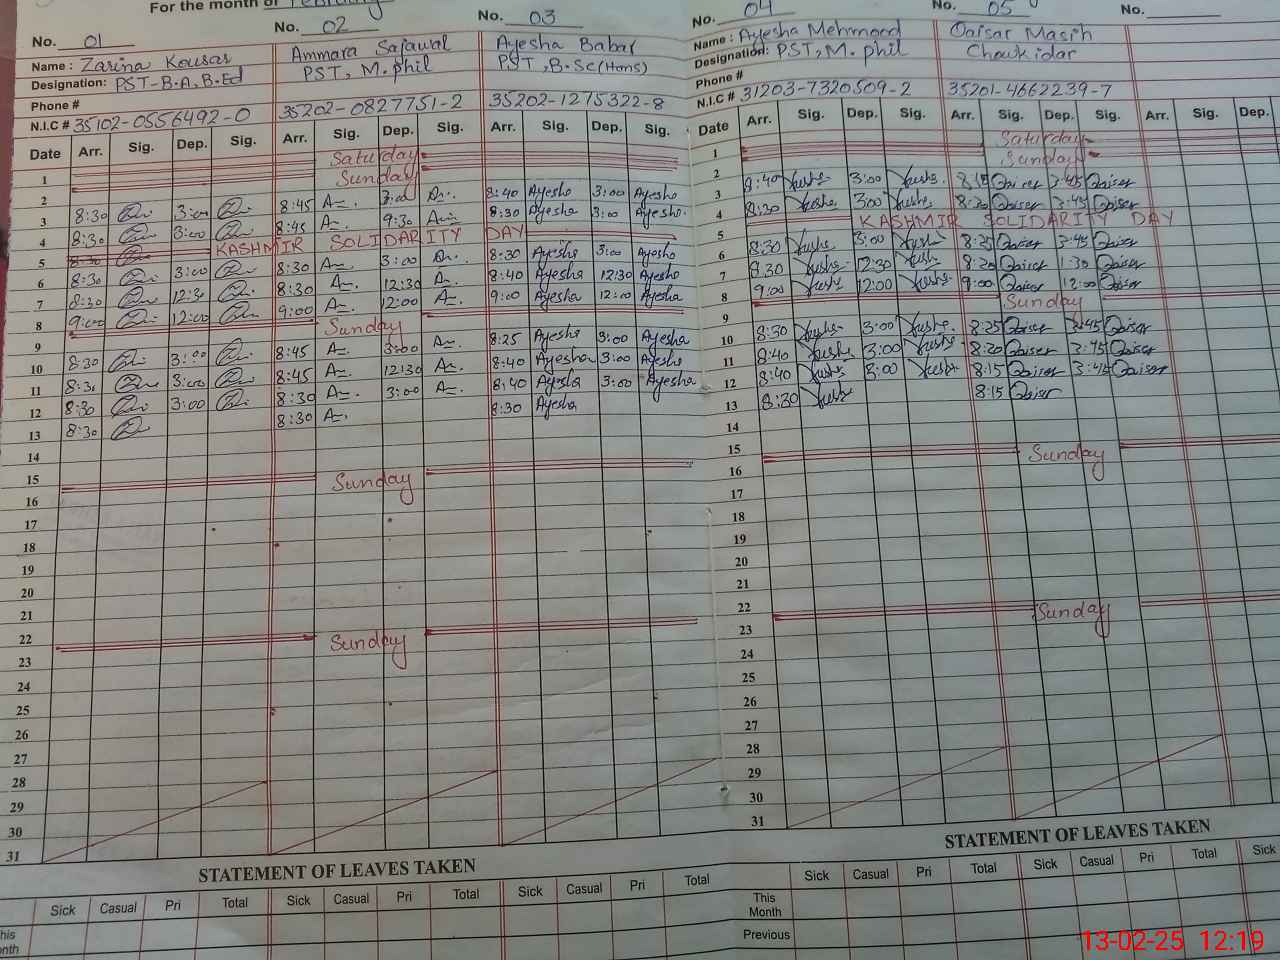 For the month of February
No. 01
Name : Zarina Kousar
Designation: PST-B.A, B.Ed
Phone #
N.I.C # 35102-0556492-0
No. 02
Ammara Sajawal
PST, M.phil
35202-0827751-2
No. 03
Ayesha Babar
PST, B.Sc(Hons)
35202-1275322-8
Date Arr. Sig. Dep. Sig. Arr. Sig. Dep. Sig. Arr. Sig. Dep. Sig.
1 Saturday
2 Sunday
3 8:30 3:00 8:45 3:00 8:40 Ayesha 3:00 Ayesha
4 8:30 3:00 8:45 9:30 8:30 Ayesha 3:00 Ayesha
5 8:30 KASHMIR SOLIDARITY DAY
6 8:30 3:00 8:30 3:00 8:30 Ayesha 3:00 Ayesha
7 8:30 12:30 8:30 12:30 8:40 Ayesha 12:30 Ayesha
8 9:00 12:00 9:00 12:00 9:00 Ayesha 12:00 Ayesha
9 Sunday
10 8:30 3:00 8:45 3:00 8:25 Ayesha 3:00 Ayesha
11 8:30 3:00 8:45 12:30 8:40 Ayesha 3:00 Ayesha
12 8:30 3:00 8:30 3:00 8:40 Ayesha 3:00 Ayesha
13 8:30 8:30 8:30 Ayesha
14
15
16 Sunday
17
18
19
20
21
22
23 Sunday
24
25
26
27
28
29
30
31
STATEMENT OF LEAVES TAKEN
Sick Casual Pri Total Sick Casual Pri Total Sick Casual Pri Total
No. 04
Name : Ayesha Mehmood
Designation: PST, M.phil
Phone #
N.I.C # 31203-7320509-2
No. 05
Qaisar Masih
Chowkidar
35201-4662239-7
No.
Date Arr. Sig. Dep. Sig. Arr. Sig. Dep. Sig. Arr. Sig. Dep.
1 Saturday
2 Sunday
3 8:40 3:00 8:15 Qaiser 3:45 Qaiser
4 8:30 3:00 8:20 Qaiser 3:45 Qaiser
5 KASHMIR SOLIDARITY DAY
6 8:30 3:00 8:25 Qaiser 3:45 Qaiser
7 8:30 12:30 8:20 Qaiser 1:30 Qaiser
8 9:00 12:00 9:00 Qaiser 12:00 Qaiser
9 Sunday
10 8:30 3:00 8:25 Qaiser 3:45 Qaiser
11 8:40 3:00 8:20 Qaiser 3:45 Qaiser
12 8:40 3:00 8:15 Qaiser Qaiser
13 8:30 8:15 Qaiser
14
15
16 Sunday
17
18
19
20
21
22
23 Sunday
24
25
26
27
28
29
30
31
STATEMENT OF LEAVES TAKEN
Sick Casual Pri Total Sick Casual Pri Total Sick
This Month
Previous
13-02-25 12:19